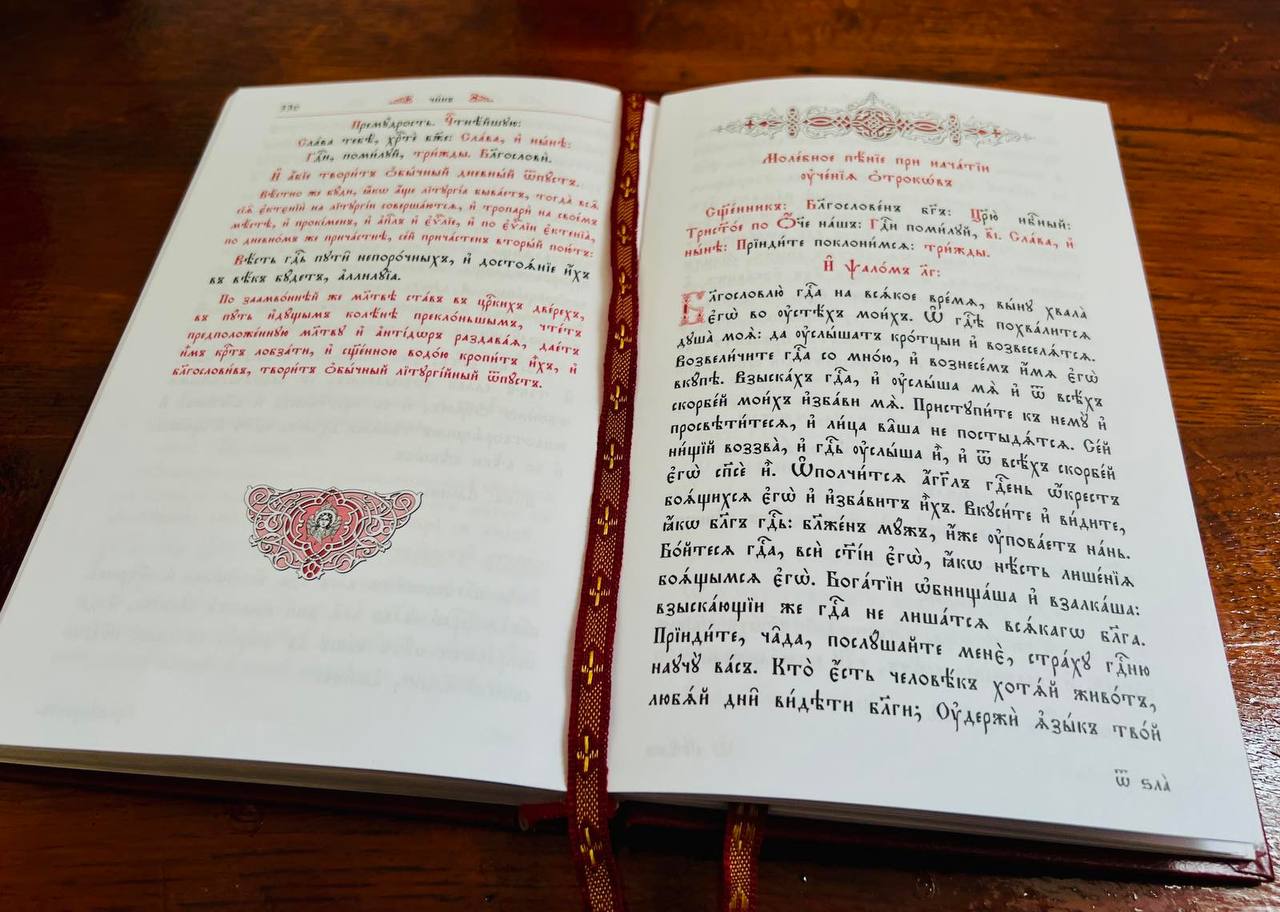 336 чи́нъ
Премꙋ́дрость. Чⷭ҇тнѣ́йшꙋю:
Сла́ва тебѣ̀, хрⷭ҇тѐ бж҃е: Сла́ва, и҆ ны́нѣ:
Гдⷭ҇и, поми́лꙋй, три́жды. Блгⷭ҇ослови̑.
И҆ а҆́бїе твори́тъ ѻ҆бы́чный дневны́й ѿпꙋ́стъ.
Вѣ́стно же бꙋ́ди, ꙗ҆́кѡ а҆́ще лїтꙋргі́а быва́етъ, тогда̀ всѧ̑
сїѧ̑ є҆ктенїи̑ на лїтꙋргі́и соверша́ютсѧ, и҆ тропари̑ на свое́мъ
мѣ́стѣ, и҆ прокі́менъ, и҆ а҆пⷭ҇лъ и҆ є҆ѵⷢ҇лїе, и҆ по є҆ѵⷢ҇лїи є҆ктенїа̀,
по дневно́мъ же прича́стнѣ, се́й прича́стенъ вторы́й пою́тъ:
Вѣ́сть гдⷭ҇ь пꙋти̑ непоро́чныхъ, и҆ достоѧ́нїе и҆́хъ
въ вѣ́къ бꙋ́детъ, а҆ллилꙋ́їа.
По заамво́ннѣй же мл҃твѣ ста́въ въ црⷭ҇кихъ две́рехъ,
въ пꙋ́ть и҆дꙋ́щымъ кѡлѣ́нѣ прекло́ньшымъ, чте́тъ
предположе́ннꙋю мл҃твꙋ и҆ а҆нтїдѡ́ръ раздава́ѧ, дае́тъ
и҆̀мъ крⷭ҇тъ лобза́ти, и҆ сщ҃е́нною водо́ю кропи́тъ и҆̀хъ, и҆
бл҃гослови́въ, твори́тъ ѻ҆бы́чный лїтꙋргі́йный ѿпꙋ́стъ.
Моле́бное пѣ́нїе при нача́тїи
ᲂу҆че́нїѧ ѻ҆трокѡ́въ
Сщ҃е́нникъ: Бл҃гослове́нъ бг҃ъ: Цр҃ю̀ нбⷭ҇ный:
Трист҃о́е по Ѻ҆́ч҃е на́шъ: Гдⷭ҇и поми́лꙋй, в҃і. Сла́ва, и҆
ны́нѣ: Прїиди́те поклони́мсѧ: три́жды.
И҆ ѱало́мъ л҃г:
Бл҃гословлю̀ гдⷭ҇а на всѧ́кое вре́мѧ, вы́нꙋ хвала̀
є҆гѡ̀ во ᲂу҆стѣ́хъ мои́хъ. Ѽ гдⷭ҇ѣ похва́литсѧ
дꙋша̀ моѧ̀: да ᲂу҆слы́шатъ кро́тцыи и҆ возвеселѧ́тсѧ.
Возвели́чите гдⷭ҇а со мно́ю, и҆ вознесе́мъ и҆́мѧ є҆гѡ̀
вкꙋ́пѣ. Взыска́хъ гдⷭ҇а, и҆ ᲂу҆слы́ша мѧ̀ и҆ ѿ всѣ́хъ
скорбе́й мои́хъ и҆зба́ви мѧ̀. Пристꙋпи́те къ немꙋ̀ и҆
просвѣти́тесѧ, и҆ ли́ца ва̑ша не постыдѧ́тсѧ. Се́й
ни́щїй воззва̀, и҆ гдⷭ҇ь ᲂу҆слы́ша и҆̀, и҆ ѿ всѣ́хъ скорбе́й
є҆гѡ̀ сп҃сѐ и҆̀. Ѡ҆полчи́тсѧ а҆́гг҃лъ гдⷭ҇ень ѡ҆́крестъ
боѧ́щихсѧ є҆гѡ̀ и҆ и҆зба́витъ и҆̀хъ. Вкꙋси́те и҆ ви́дите,
ꙗ҆́кѡ бл҃гъ гдⷭ҇ь: бл҃же́нъ мꙋ́жъ, и҆́же ᲂу҆пова́етъ на́нь.
Бо́йтесѧ гдⷭ҇а, всѝ ст҃і́и є҆гѡ̀, ꙗ҆́кѡ нѣ́сть лише́нїѧ
боѧ́щымсѧ є҆гѡ̀. Бога́тїи ѡ҆бнища́ша и҆ взалка́ша:
взыска́ющїи же гдⷭ҇а не лиша́тсѧ всѧ́кагѡ бл҃га.
Прїиди́те, ча̑да, послꙋ́шайте менѐ, стра́хꙋ гдⷭ҇ню
наꙋчꙋ̀ ва́съ. Кто̀ є҆́сть человѣ́къ хотѧ́й живо́тъ,
любѧ́й дни̑ ви́дѣти бл҃ги; Оу҆держѝ ѧ҆зы́къ тво́й
ѿ ѕла̀